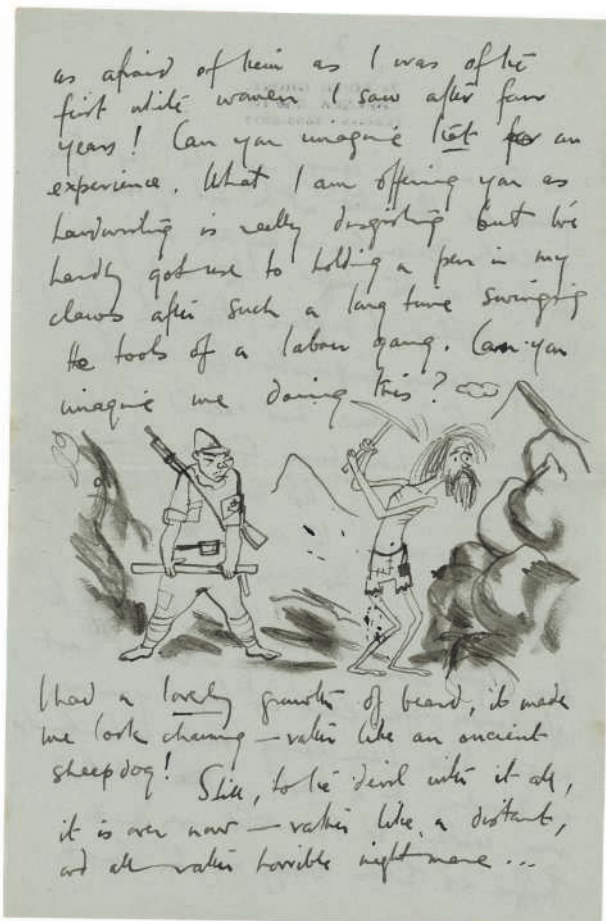 as afraid of them as I was of the
first white women I saw after four
years! Can you imagine that for an
experience. What I am offering you as
handwriting is really disgusting but I've
hardly got use to holding a pen in my
claws after such a long time swinging
the tools of a labour gang. Can you
imagine me doing this?
I had a lovely growth of beard, it made
me look charming – rather like an ancient
sheepdog!
Still, to the devil with it all,
it is over now – rather like a distant,
and all rather horrible nightmare ...